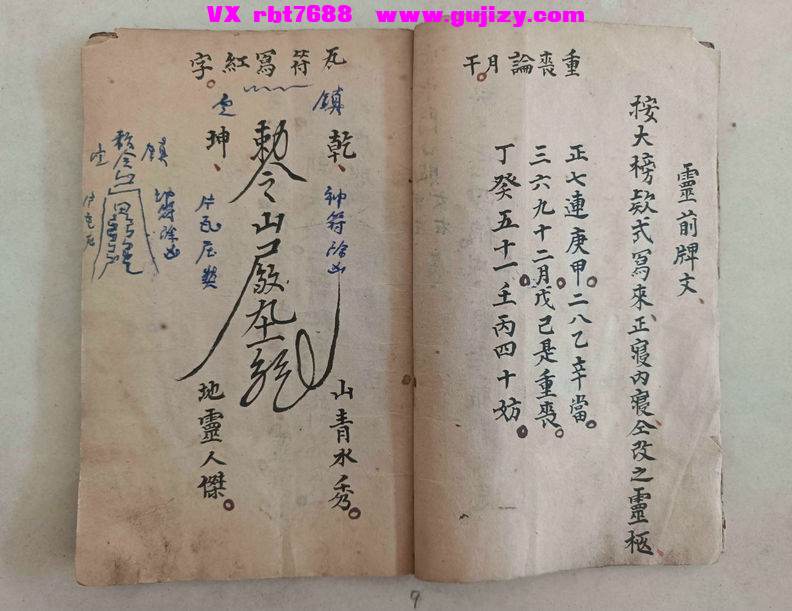 VX rbt7688 www.gujizy.com
靈前牌文、
按大榜款式寫來正寢內寢仝改之靈柩、
重喪論月干。
正七連庚甲。二八乙辛當。
三六九十二月。戊己是重喪。
丁癸五十一壬丙四十妨。
瓦符寫紅字。
鎮
乾、
神符除凶
山青水秀。
勅令山
定
坤、
片瓦压煞
地靈人傑。
鎮
神符除凶
9